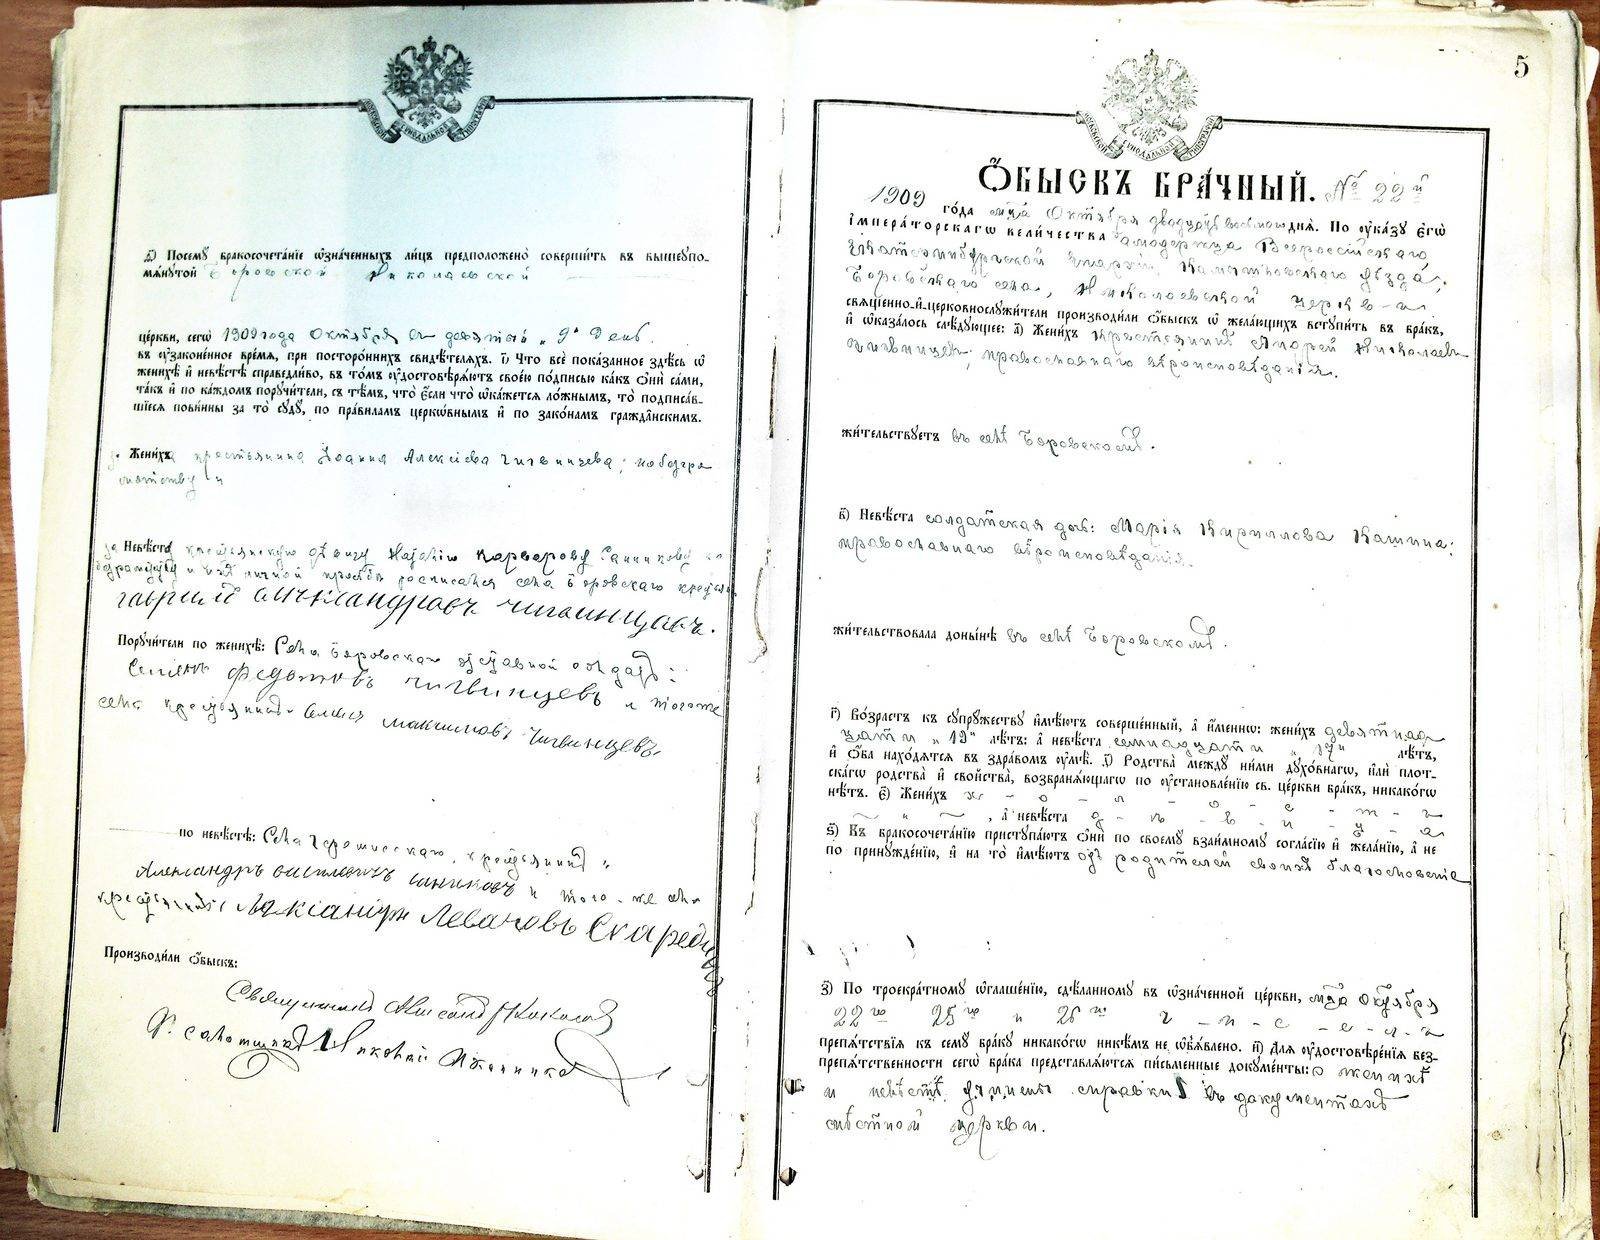 МОСКОВСКОЙ СѴНОДАЛЬНОЙ ТѴПОГРАФІИ
д҃) Посемꙋ бракосочета́нїе ѡ҆зна́ченныхъ ли́цъ предположено̀ соверши́ть въ вышеꙋпо-
мѧ́нꙋтой Боровской Николаевской
це́ркви, сегѡ̀ 1909 года Октября въ девятый „9“ день
въ ᲂу҆зако́ненное вре́мѧ, при посторо́ннихъ свидѣ́телѧхъ. і҃) Что̀ всѐ пока́занное здѣ́сь ѡ҆
женихѣ̀ и҆ невѣ́стѣ справедли́во, въ то́мъ ᲂу҆достовѣрѧ́ютъ свое́ю по́дписью ка́къ ѻ҆нѝ са́ми,
та́къ и҆ по ка́ждомъ порꙋчи́тели, съ тѣ́мъ, что̀ є҆́сли что̀ ѡ҆ка́жетсѧ ло́жнымъ, то̀ подписа́в-
шїесѧ пови́нны за то̀ сꙋдꙋ̀, по пра́виламъ церко́внымъ и҆ по зако́намъ гражда́нскимъ.
Жени́хъ крестьянина Іоанна Алексіева Чигвинцева; по безгра
мотству и
Невѣ́стꙋ крестьянскую дѣвицу Санникову по
безграмотству и ихъ личной просьбѣ росписался села Боровскаго крестьян
гаврило Александровъ чигвинцовъ.
Порꙋчи́тели по женихѣ̀: Села Боровскаго
Семенъ Федотовъ Чигвинцевъ и тогоже
села крестьянинъ Максимовъ Чигвинцевъ
по невѣ́стѣ: Села крестьянинъ
Александръ васильевичъ санниковъ и того-же села
крестьянинъ Скаредн
Произво́дили ѻ҆́быскъ:
Священникъ
Псаломщикъ Николай
5
МОСКОВСКОЙ СѴНОДАЛЬНОЙ ТѴПОГРАФІИ
Ѻ҆́БЫСКЪ БРА́ЧНЫЙ. № 22й
1909 го́да мца Октября двадцать восьмого днѧ̀. По ᲂу҆ка́зꙋ Є҆гѡ̀
І҆мпера́торскагѡ вели́чества Самодержца Всероссійскаго,
Екатеринбургской епархіи, Камышловскаго уѣзда,
Боровскаго села, Николаевской церкви
свѧще́нно-и҆-церковнослꙋжи́тели производи́ли ѻ҆́быскъ ѡ҆ жела́ющихъ встꙋпи́ть въ бра́къ,
и҆ ѡ҆каза́лось слѣ́дꙋющее: а҃) Жени́хъ крестьянинъ Андрей Николаевъ
Чигвинцевъ; православнаго вѣроисповѣданія.
жи́тельствꙋетъ въ селѣ Боровскомъ.
в҃) Невѣ́ста солдатская дочь: Марія Кирилова Кашина:
православнаго вѣроисповѣданія.
жи́тельствовала доны́нѣ въ селѣ Боровскомъ.
г҃) Во́зрастъ къ сꙋпрꙋ́жествꙋ и҆мѣ́ютъ соверше́нный, а҆ и҆́менно: жени́хъ девятнад
цати „19“ лѣ́тъ: а҆ невѣ́ста семнадцати „17“ лѣ́тъ,
и҆ ѻ҆́ба нахо́дѧтсѧ въ здра́вомъ ᲂу҆мѣ̀. д҃) Родства̀ междꙋ ни́ми дꙋхо́внагѡ, и҆лѝ пло́т-
скагѡ родства̀ и҆ сво́йства, возбранѧ́ющагѡ по ᲂу҆становле́нїю св. це́ркви бра́къ, никако́гѡ
нѣ́тъ. є҃) Жени́хъ х - о - л - о - с - т - ъ
, а҆ невѣ́ста д - ѣ - в - и - ц - а
ѕ҃) Въ бракосочета́нїю пристꙋпа́ютъ ѻ҆нѝ по своемꙋ̀ взаи́мномꙋ согла́сїю и҆ жела́нїю, а҆ не
по принꙋжде́нїю, и҆ на то̀ и҆мѣ́ютъ отъ родителей своихъ благословеніе
з҃) По троекра́тномꙋ ѡ҆глаше́нїю, сдѣ́ланномꙋ въ ѡ҆зна́ченной це́ркви, мца Октября
22го 25го и 26го ч - и - с - е - л - ъ
препѧ́тствїѧ къ семꙋ̀ бра́кꙋ никако́гѡ никѣ́мъ не ѡ҆б̾ѧ́влено. и҃) Для ᲂу҆достовѣре́нїѧ без-
препѧ́тственности сегѡ̀ бра́ка представлѧ́ютсѧ пи́сьменные докꙋме́нты: о женихѣ
и невѣстѣ учинены справки въ документахъ
мѣстной церкви.